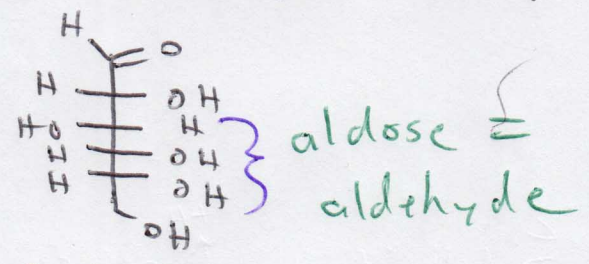 H
O
H OH
HO H
H OH
H OH
OH
aldose =
aldehyde